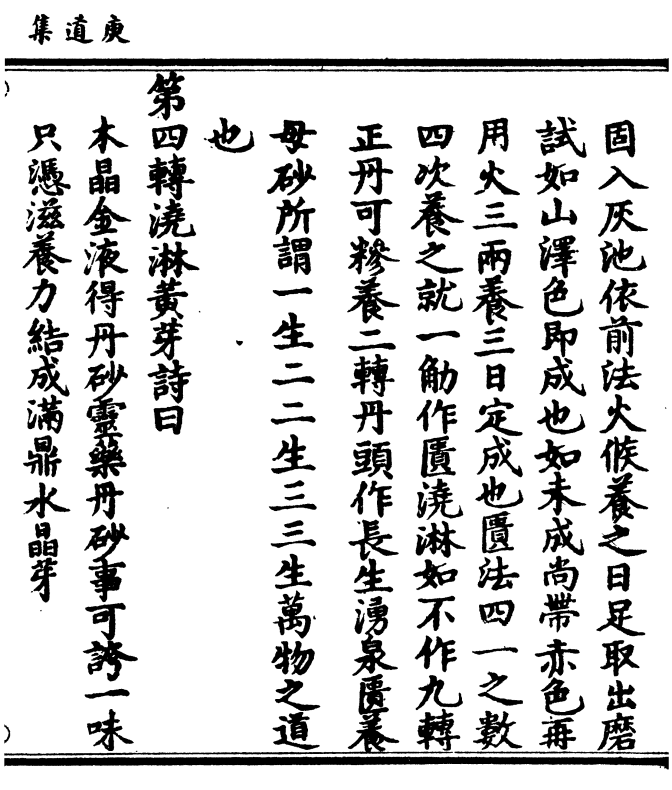 庚道集
固入灰池依前法火候養之日足取出磨
試如山澤色即成也如未成尚帶赤色再
用火三兩養三日定成也匱法四一之數
四次養之就一觔作匱澆淋如不作九轉
正丹可糝養二轉丹頭作長生湧泉匱養
母砂所謂一生二二生三三生萬物之道
也
第四轉澆淋黃芽詩曰
木晶金液得丹砂靈藥丹砂事可誇一味
只憑滋養力結成滿鼎水晶芽